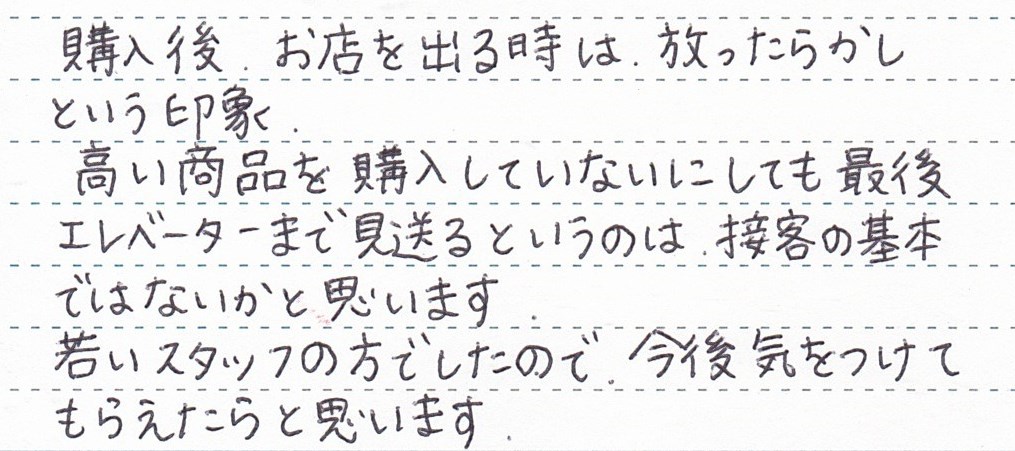 購入後、お店を出る時は、放ったらかし
という印象、
高い商品を購入していないにしても最後
エレベーターまで見送るというのは、接客の基本
ではないかと思います、
若いスタッフの方でしたので、今後気をつけて
もらえたらと思います、